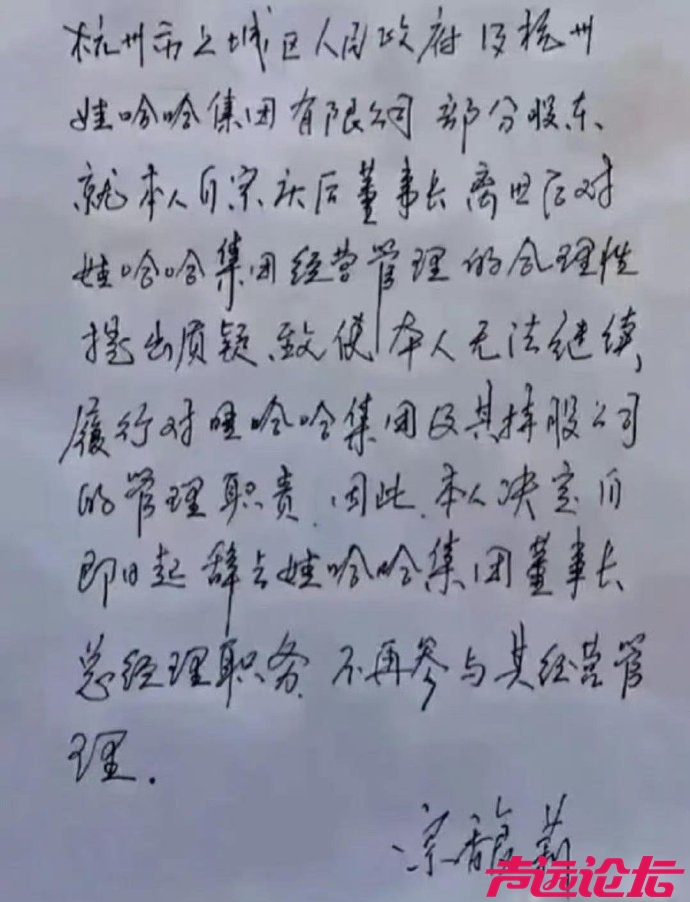 杭州市上城区人民政府及杭州
娃哈哈集团有限公司部分股东、
就本人自宗庆后董事长离世后对
娃哈哈集团经营管理的合理性
提出质疑、致使本人无法继续,
履行对哇哈哈集团及其持股公司
的管理职责.因此.本人决定自
即日起辞去娃哈哈集团董事长
总经理职务.不再参与其经营管
理.
宗馥莉
声远论坛